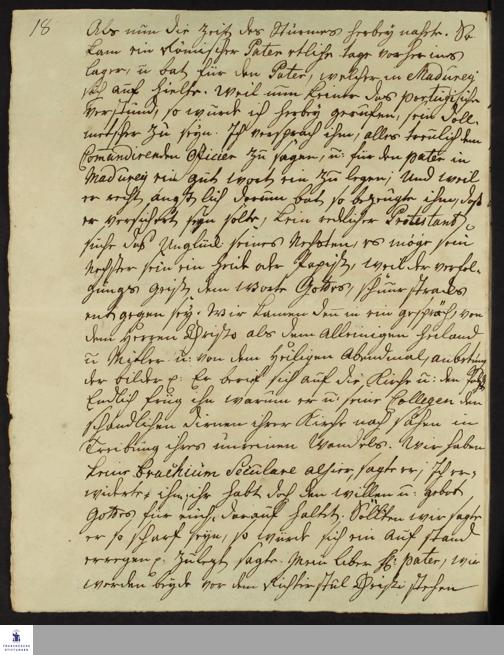 18
Als nun die Zeit des Sturmes herbey nahete. So
kam ein Römischer Pater etliche tage vorher ins
Lager, u bat für den Pater, welcher in Madurey
sich auf hielte. Weil nun keiner das portugisische
verstund, so wurde ich herbey geruffen, sein Doll-
metscher zu seyn. Ich versprach ihm, alles treulich dem
Comandirenden Officier zu sagen, u: für den pater in
Madurey ein gut wort ein zu legen; Und weil
er recht ängstlich darum bat, so bezeugte ihm, daß
er versichert seyn solte, kein redlicher Protestant
suche das Unglück seines Nechsten, es möge sein
Nechster sein ein Heide oder Papist, weil der verfol-
gungs Geist dem Worte Gottes, schnurstracks
entgegen sey. Wir kamen denn in ein gespräch, von
dem Herren Christo als dem Alleinigen Heiland
u Mitler u: von dem Heiligen Abendmal, anbetung
der bilder p: Er berief sich auf die Kirche u: den
Endlich frug ihn warum er u seine Collegen den
schändlichen Dirnen ihrer Kirche nach sähen in
Treibung ihres unreinen Wandels. Wir haben
keine Brachium Seculare alhier, sagte er; Ich er-
widerte ihm, ihr habt doch den willen u: gebot
Gottes für euch, darauf haltet. Sollten wir sagte
er so scharf seyn, so würde sich ein Aufstand
erregen p. Zuletzt sagte. Mein lieber H: Pater, wir
werden beyde vor dem Richterstul Christi stehen
FRANCKESCHE
STIFTUNGEN